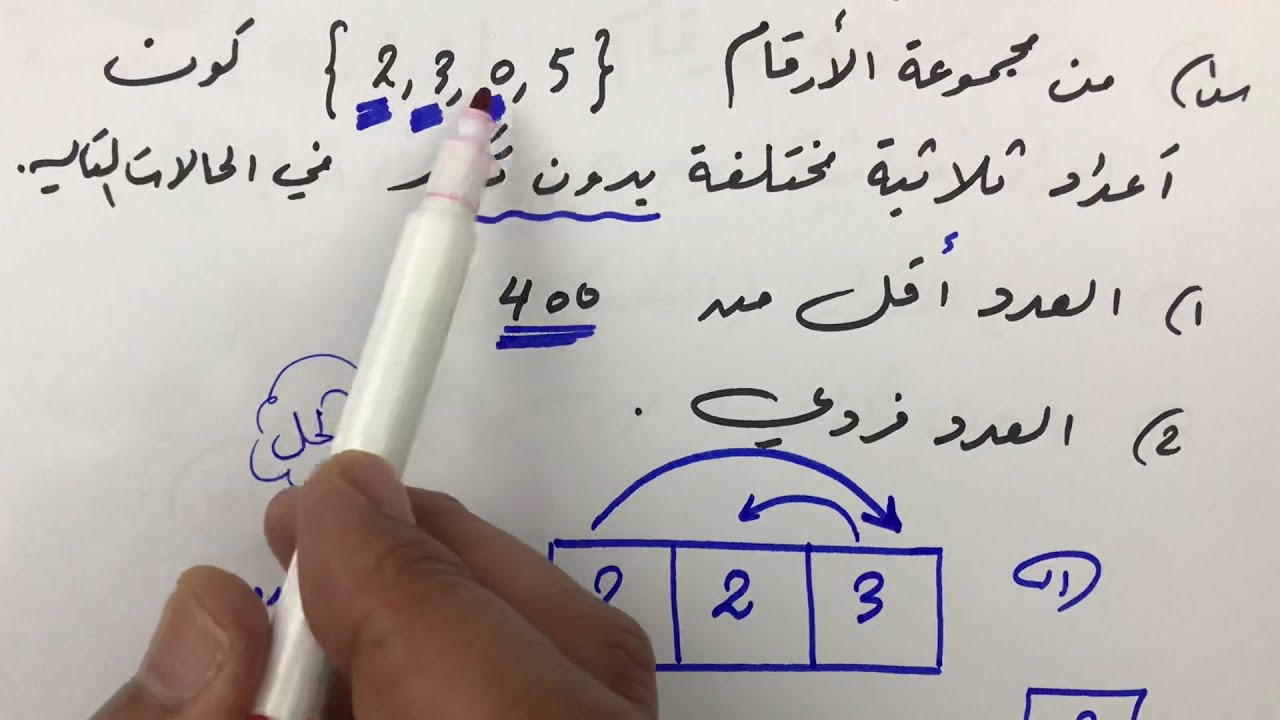 س١) من مجموعة الأرقام {2,3,0,5} كون
أعداد ثلاثية مختلفة بدون في الحالات التالية.
١) العدد أقل من 400
2) العدد فردي.
الحل
2 2 3